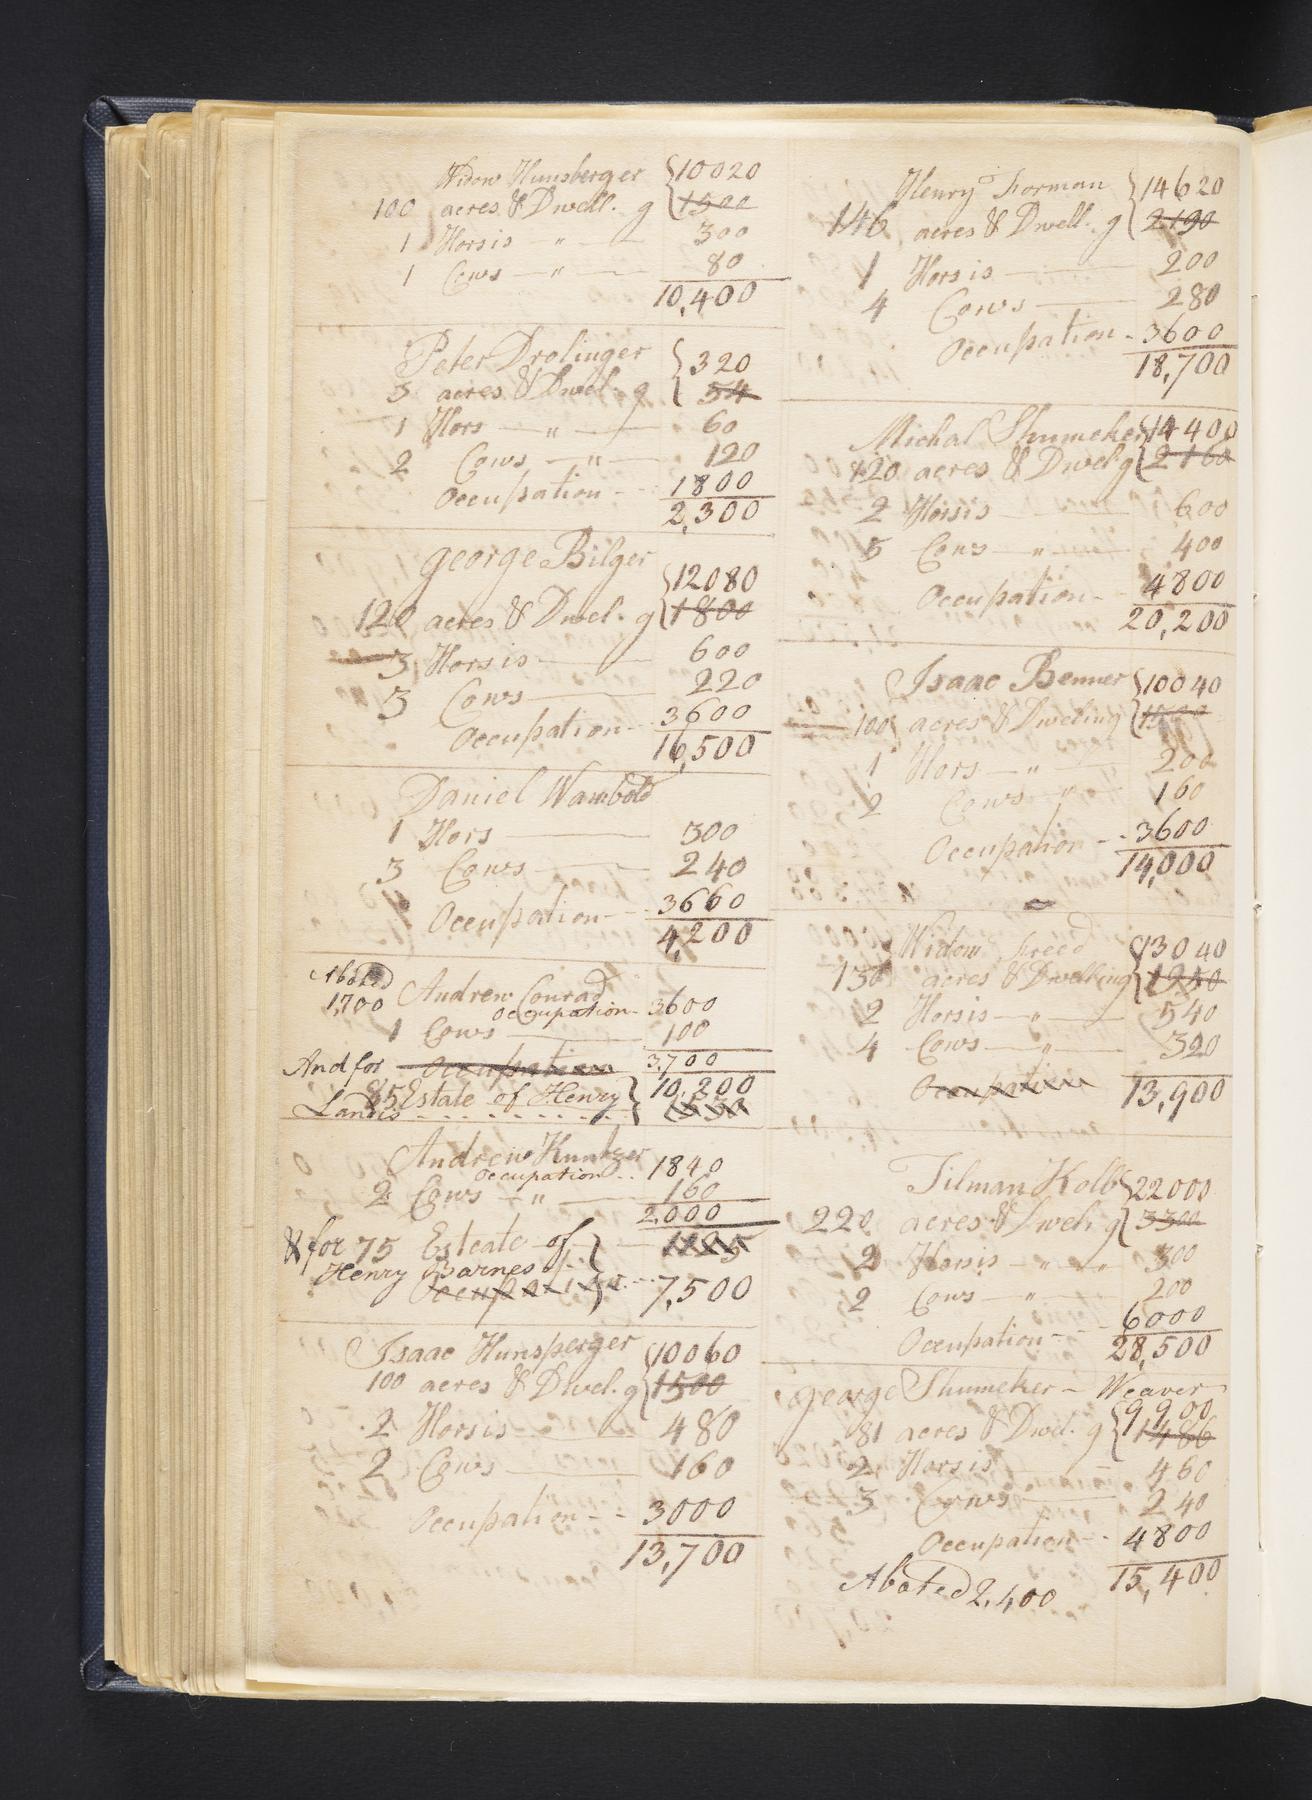 Widow Hunsberger 10020
100 acres & Dwell.g 1500
1 Horsis — " — 300
1 Cows — " — 80
10,400
Peter Drolinger 320
3 acres & Dwel.g 54
1 Hors — " — 60
2 Cows — " — 120
Occupation - - 1800
2,300
george Bilger 12080
120 acres & Dwel.g 1800
3 Horsis — 600
3 Cows — 220
Occupation - - 3600
16,500
Daniel Wambold
1 Hors — 300
3 Cows — 240
Occupation - - 3660
4,200
Abated
1,700 Andrew Conrad
Occupation - 3600
1 Cows — 100
And for Occupation 3,700
85 Estate of Henry 10,200
Landis
Andrew Kuntzer
Occupation .. 1840
2 Cows — " — 160
2,000
& for 75 Esteate of
Henry Barnes
Occupation 7,500
Isaac Hunsperger 10060
100 acres & Dwel.g 1500
2 Horsis — 480
2 Cows — 160
Occupation - - 3000
13,700
Henry Forman 14620
146 acres & Dwell.g 2190
1 Horsis — 200
4 Cows — 280
Occupation - 3600
18,700
Michal Shumeker 14400
120 acres & Dwel.g 2160
2 Horsis — 600
5 Cows — " — 400
Occupation - - 4800
20,200
Isaac Benner 10040
100 acres & Dweling 1500
1 Hors — " — 200
2 Cows — " — 160
Occupation - - 3600
14,000
Widow Freed 13040
130 acres & Dwelling 1950
2 Horsis — " — 540
4 Cows — " — 320
Occupation 13,900
Tilman Kolb 22000
220 acres & Dwel.g 3300
2 Horsis — " — " 300
2 Cows — " — 200
6000
Occupation - - 28,500
george Shumeker — Weaver
9900
81 acres & Dwel.g 1486
2 Horsis — 460
3 Cows — 240
Occupation - - 4800
15,400
Abated 2,400